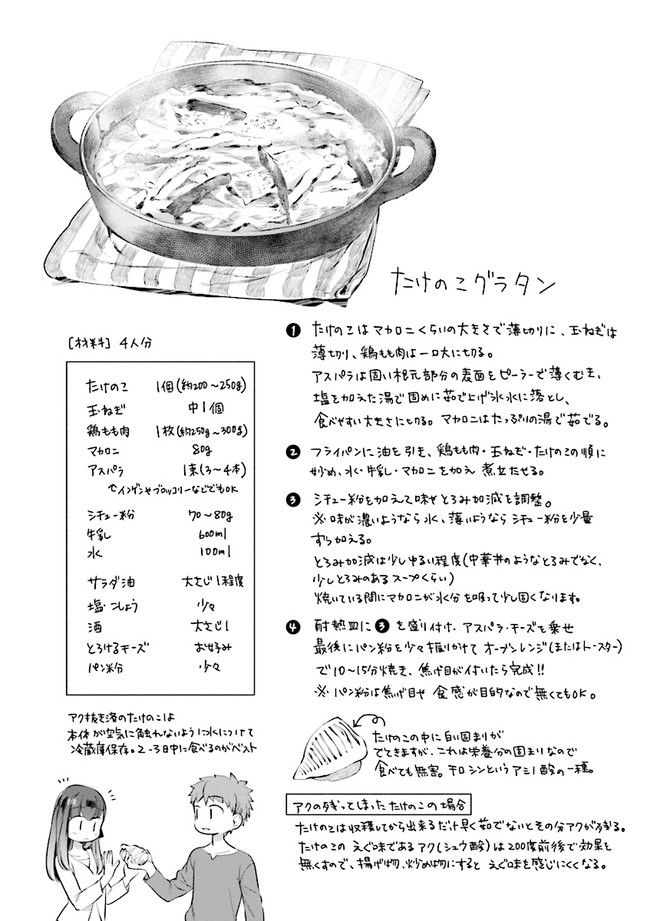 たけのこグラタン
[材料] 4人分
たけのこ 1個(約200~250g)
玉ねぎ 中1個
鶏もも肉 1枚(約250g~300g)
マカロニ 80g
アスパラ 1束(3~4本)
インゲンやブロッコリーなどでもOK
シチュー粉 70~80g
牛乳 600ml
水 100ml
サラダ油 大さじ1程度
塩・こしょう 少々
酒 大さじ1
とろけるチーズ お好み
パン粉 少々
❶ たけのこはマカロニくらいの大きさで薄切りに、玉ねぎは
薄切り、鶏もも肉は一口大に切る。
アスパラは固い根元部分の表面をピーラーで薄くむき、
塩を加えた湯で固めに茹で上げ氷水に落とし、
食べやすい大きさに切る。マカロニはたっぷりの湯で茹でる。
❷ フライパンに油を引き、鶏もも肉・玉ねぎ・たけのこの順に
炒め、水・牛乳・マカロニを加え煮立たせる。
❸ シチュー粉を加えて味やとろみ加減を調整。
※味が濃いようなら水、薄いようならシチュー粉を少量
ずつ加える。
とろみ加減は少しゆるい程度(中華丼のようなとろみでなく、
少しとろみのあるスープくらい)
焼いている間にマカロニが水分を吸って少し固くなります。
❹ 耐熱皿に❸を盛り付け、アスパラ・チーズを乗せ
最後にパン粉を少々振りかけてオーブンレンジ(またはトースター)
で10~15分焼き、焦げ目が付いたら完成!!
※パン粉は焦げ目や食感が目的なので無くてもOK。
アク抜き済のたけのこは
本体が空気に触れないように水につけて
冷蔵庫保存。2-3日中に食べるのがベスト
たけのこの中に白い固まりが
でてきますが、これは栄養分の固まりなので
食べても無害。チロシンというアミノ酸の一種。
アクの残ってしまったたけのこの場合
たけのこは収穫してから出来るだけ早く茹でないとその分アクが残る。
たけのこのえぐ味であるアク(シュウ酸)は200度前後で効果を
無くすので、揚げ物、炒め物にするとえぐ味を感じにくくなる。